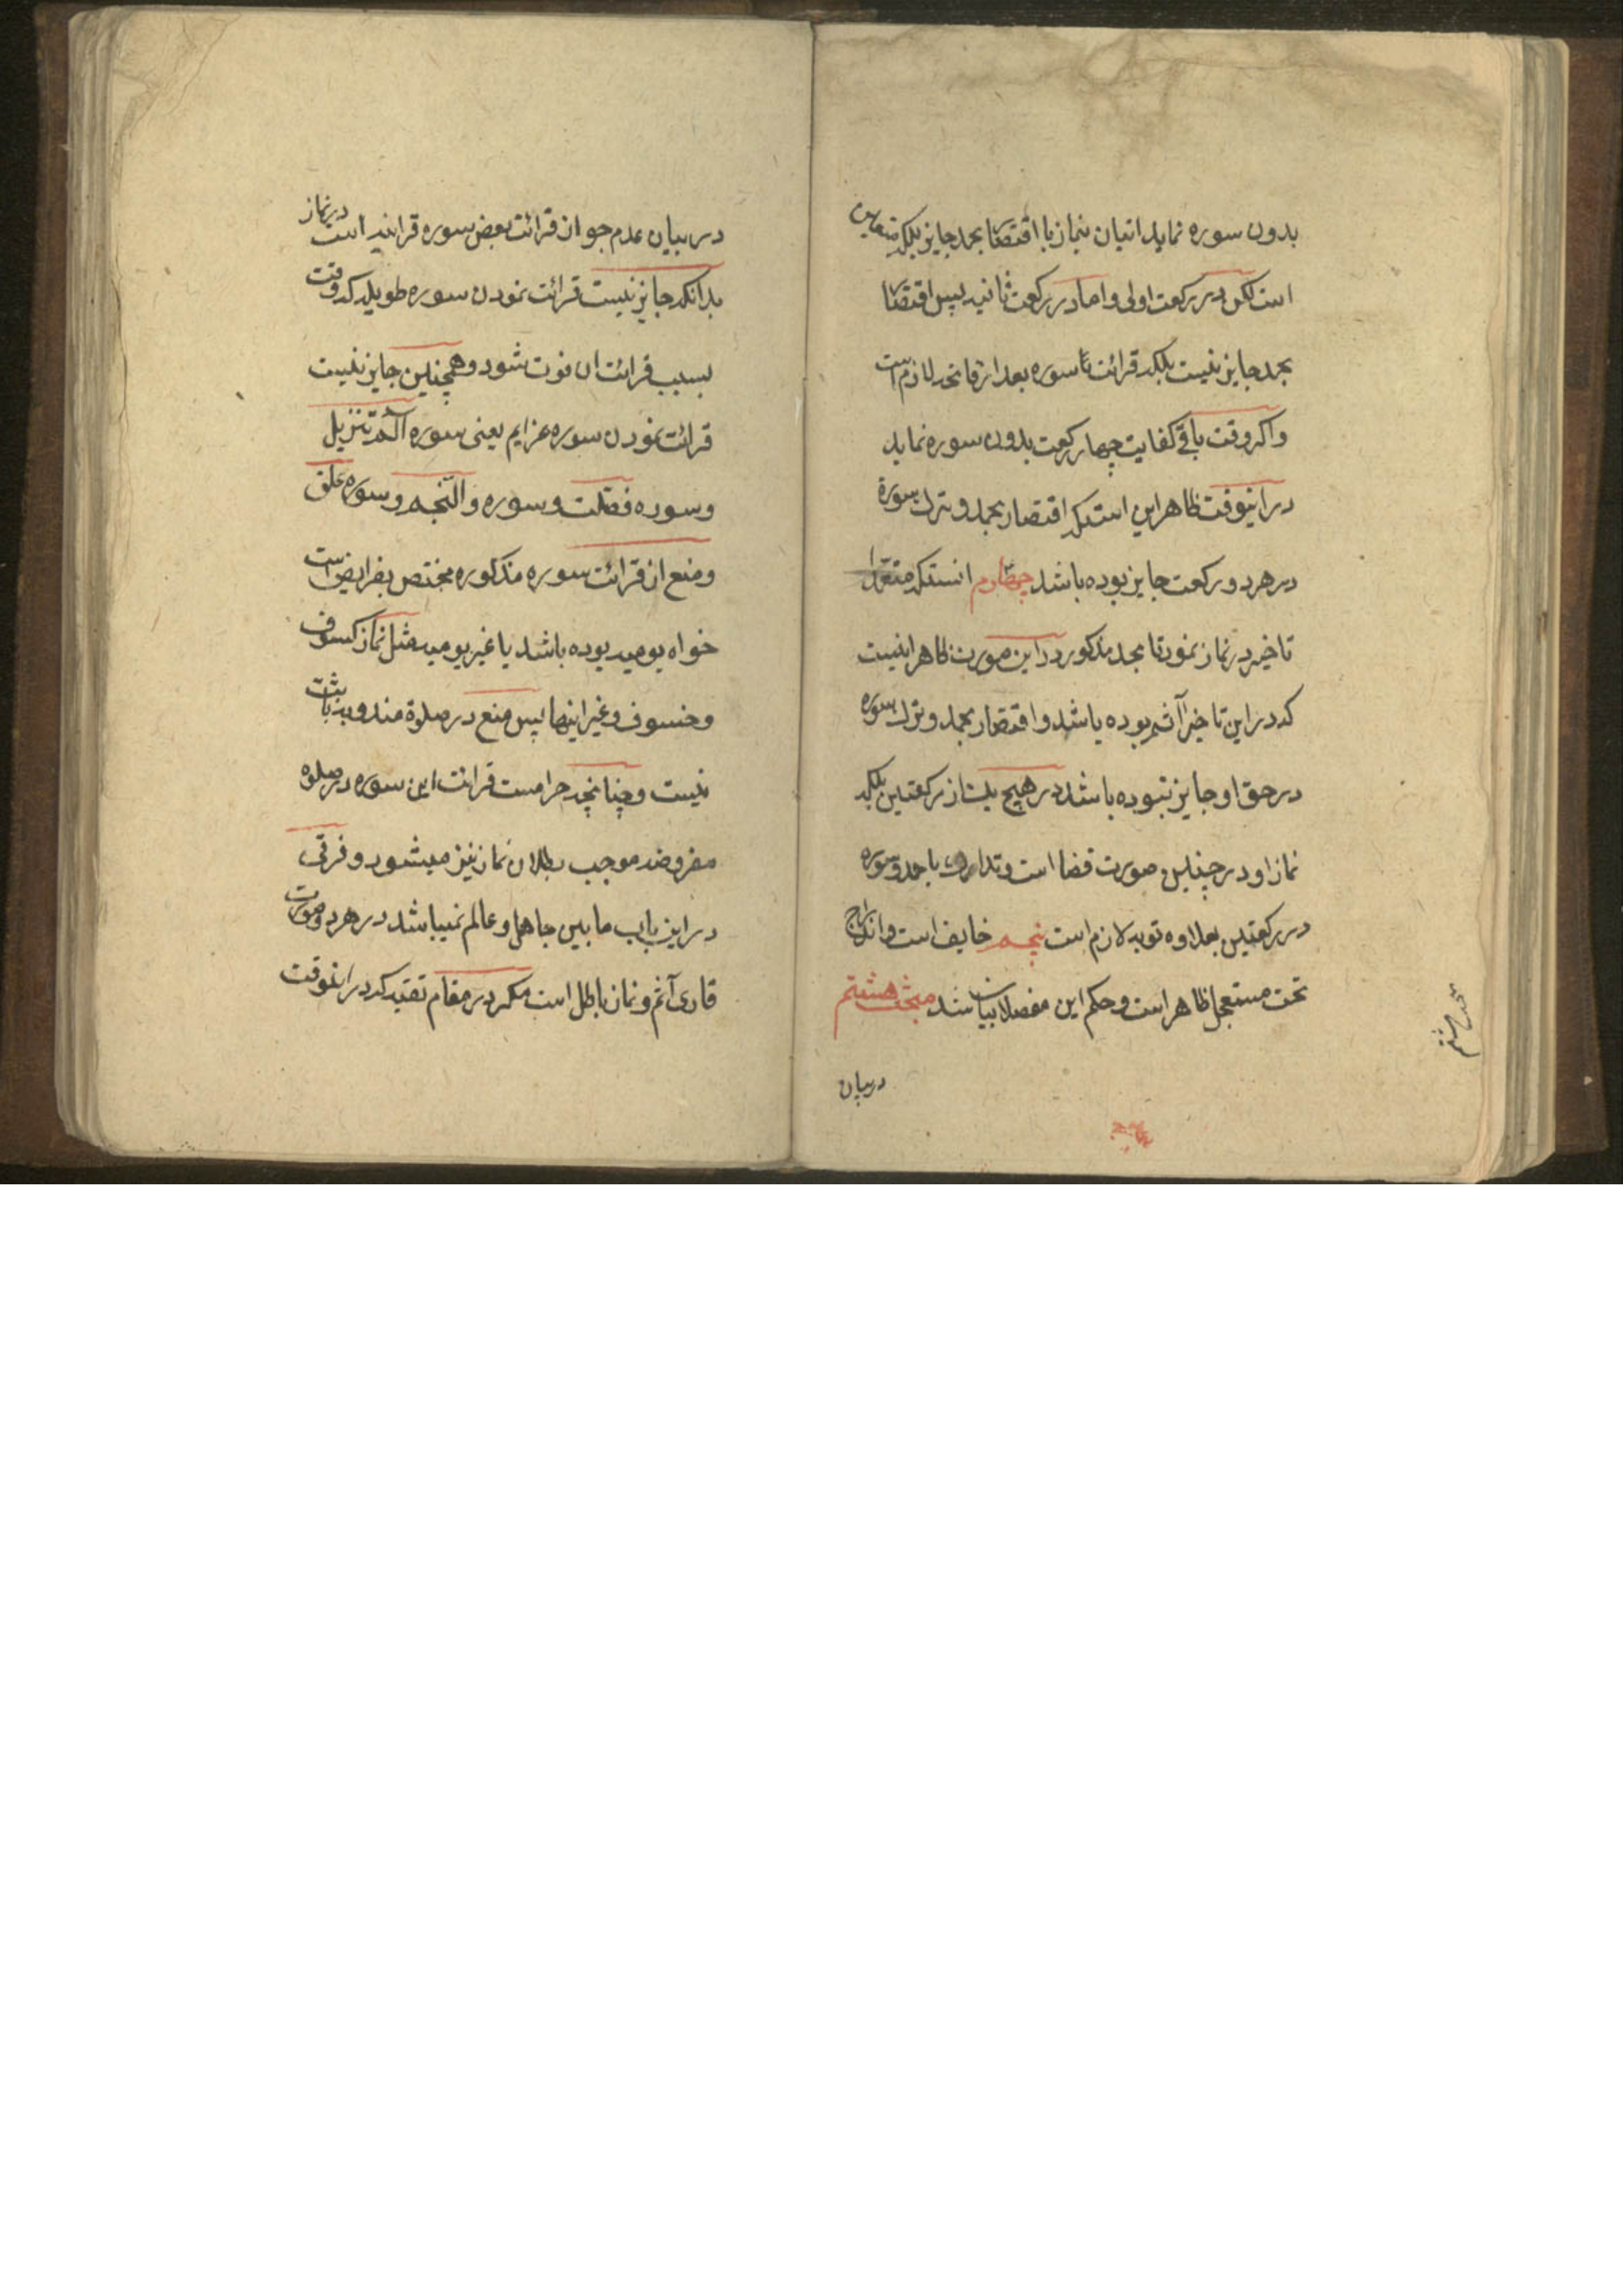 بدون سوره نماید اتیان بنماز با اقتصار بحمد جایز بلکه متعین
است لکن در رکعت اولی و اما در رکعت ثانیه پس اقتصار
بحمد جایز نیست بلکه قرائت سوره بعد از فاتحه لازم است
و اکر وقت باقی کفایت چهار رکعت بدون سوره نماید
در اینوقت ظاهر این استکه اقتصار بحمد و ترک سورة
در هر دو رکعت جایز بوده باشد چهارم انستکه متعمدا
تاخیر در نماز نمود تا بحد مذکور در این صورت ظاهر اینست
که در این تاخیر آثم بوده باشد و اقتصار بحمد و ترک سوره
در حق او جایز نبوده باشد در هیچ یک از رکعتین بلکه
نماز او در چنین صورت قضا است و تدارک با حمد و سوره
در رکعتین بعلاوه توبه لازم است پنجم خایف است و اندراج
تحت مستعجل ظاهر است و حکم این مفصلا بیان شد مبحث هشتم
در بیان
مبحث هشتم
در بیان عدم جواز قرائت بعض سوره قرانیه است در نماز
بدانکه جایز نیست قرائت نمودن سوره طویله که وقت
بسبب قرائت ان فوت شود و همچنین جایز نیست
قرائت نمودن سوره عزایم یعنی سوره الم تنزیل
و سوره فصلت و سوره والنجم و سوره علق
و منع از قرائت سوره مذکوره مختص بفرایض است
خواه یومیه بوده باشد یا غیر یومیه مثل نماز کسوف
و خسوف و غیر اینها پس منع در صلوة مندوبه ثابت
نیست و چنانچه حرامست قرائت این سوره در صلوه
مفروضه موجب بطلان نماز نیز میشود و فرقی
در این باب ما بین جاهل و عالم نمیباشد در هر دو صورت
قاری آثم و نماز باطل است مکر در مقام تقیه که در اینوقت